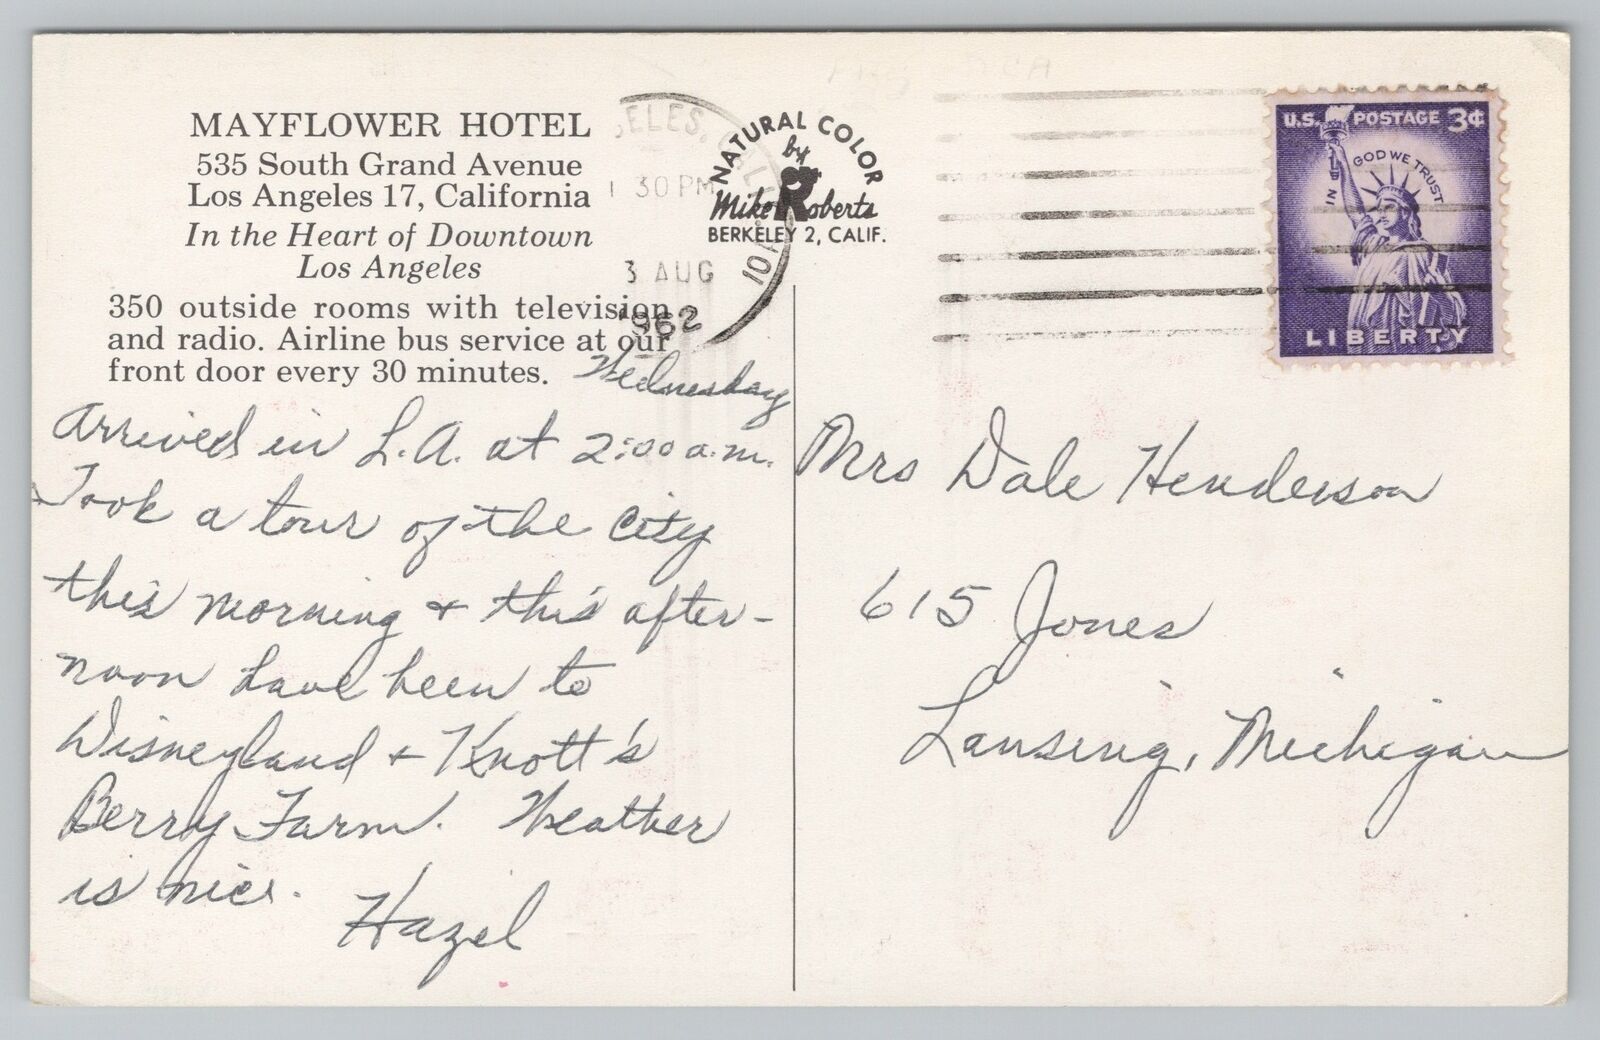 MAYFLOWER HOTEL
535 South Grand Avenue
Los Angeles 17, California
In the Heart of Downtown
Los Angeles
350 outside rooms with television
and radio. Airline bus service at our
front door every 30 minutes.
ELES, CALIF.
30 PM
3 AUG
1962
NATURAL COLOR
by
Mike Roberts
BERKELEY 2, CALIF.
U.S. POSTAGE 3¢
IN GOD WE TRUST
LIBERTY
Wednesday
Arrived in L.A. at 2:00 a.m.
Took a tour of the City
this morning + this after-
noon have been to
Disneyland + Knott's
Berry Farm. Weather
is nice.
Hazel
Mrs Dale Henderson
615 Jones
Lansing, Michigan